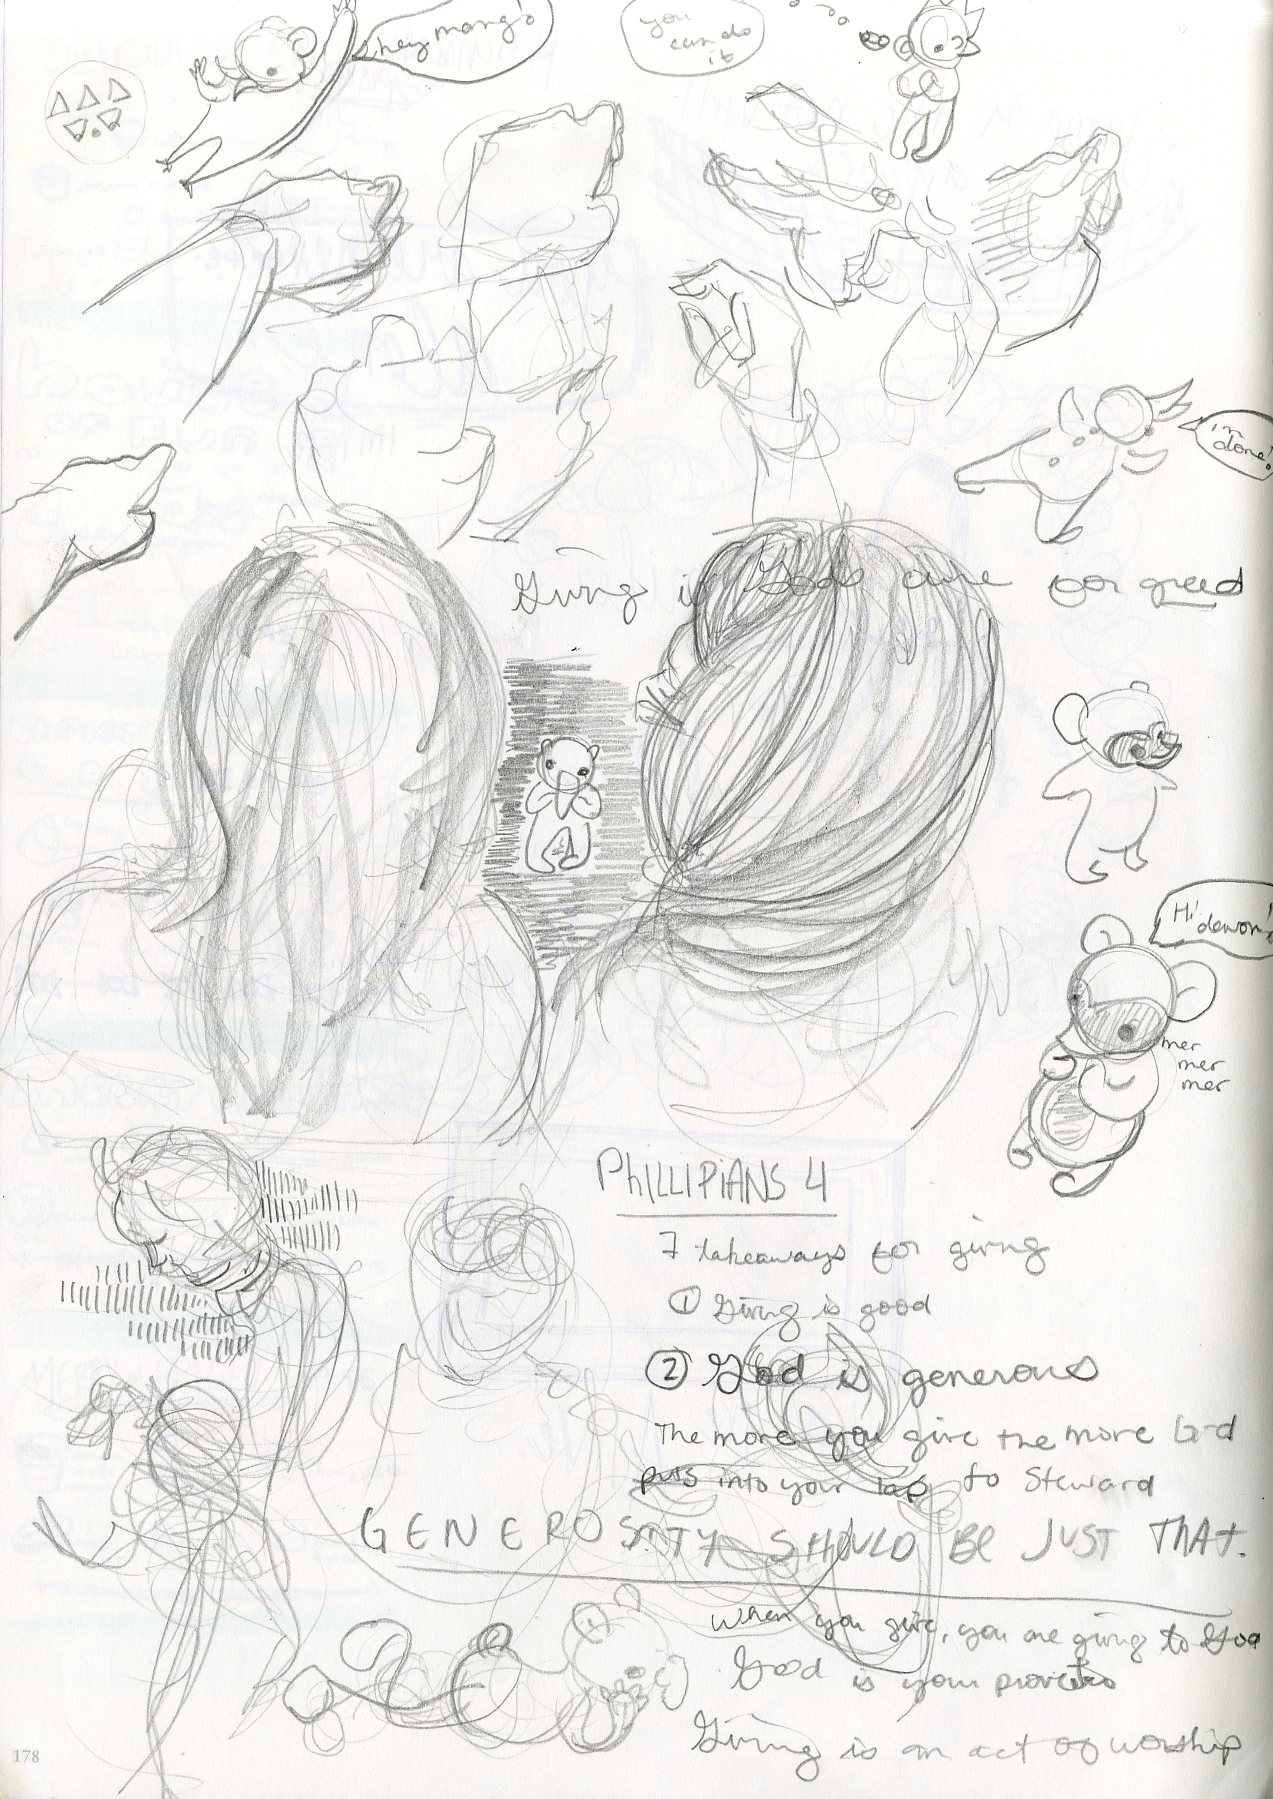 hey mang!
you
can do
it
i'm
done!
Giving is God's cure for greed
Hi
mer
mer
mer
PHILLIPIANS 4
7 takeaways for giving
① Giving is good
② God is generous
The more you give the more God
puts into your lap to Steward
GENEROSITY SHOULD BE JUST THAT.
When you give, you are giving to God
God is your
Giving is an act of worship
178